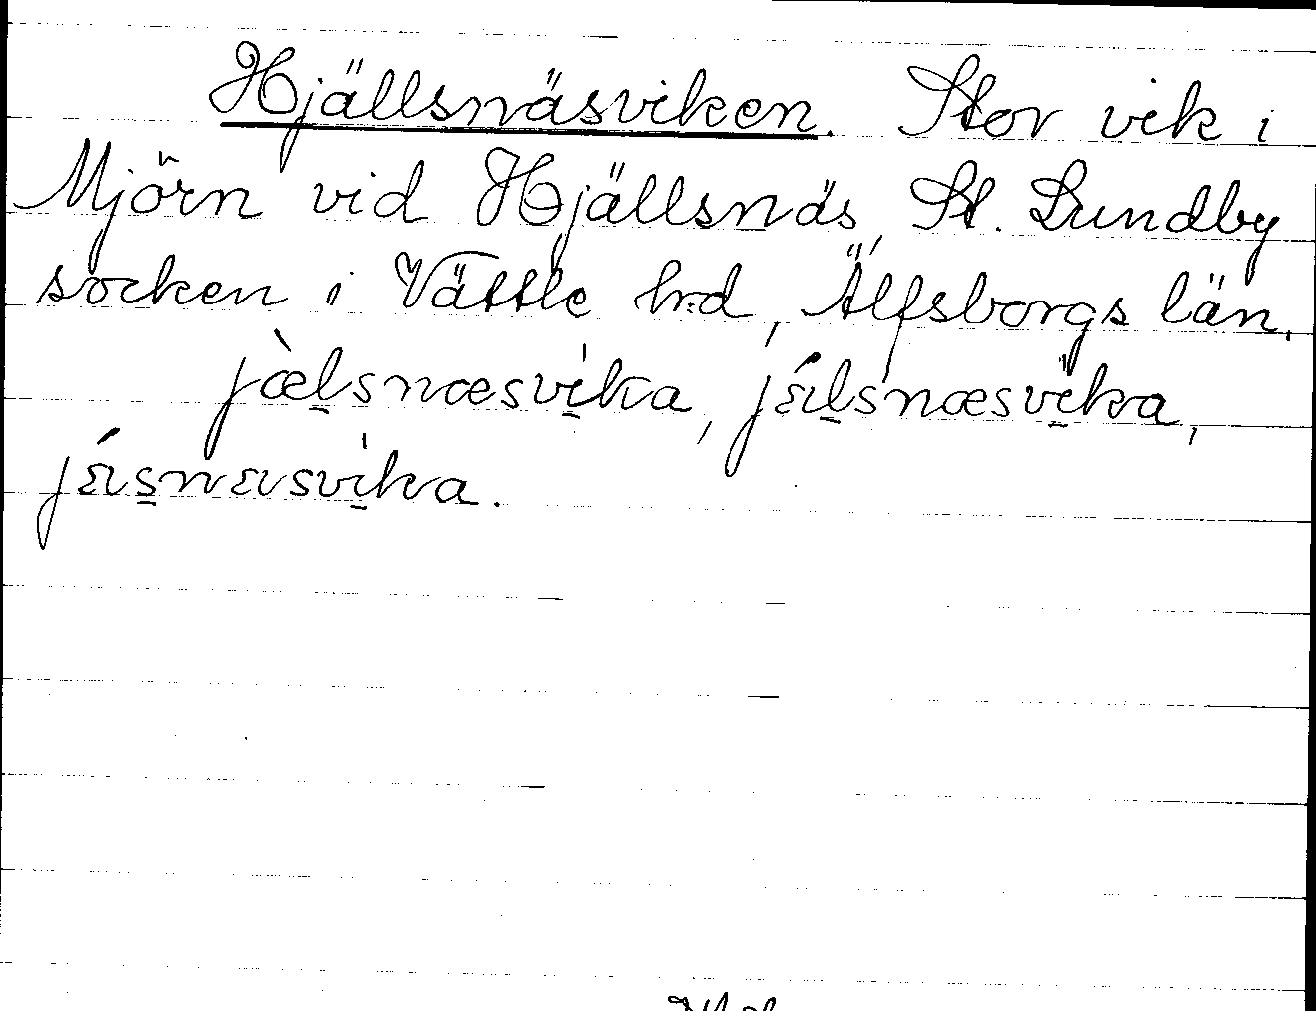 Hjällsnäsviken. Stor vik i
Mjörn vid Hjällsnäs, St. Lundby
socken i Vättle hrd, Älfsborgs län.
jæ̀lsnæsvika, jǽlsnæsvika,